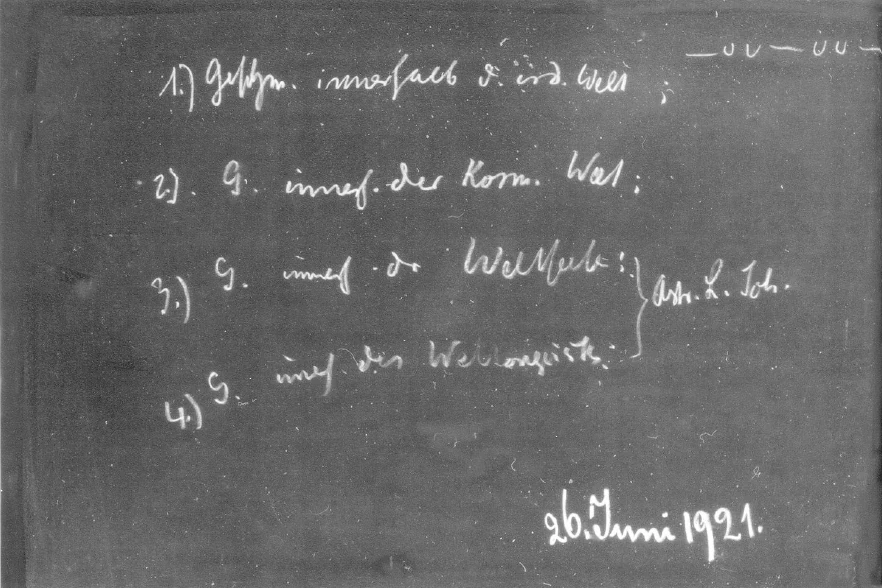 — ∪ ∪ — ∪ ∪ —
1.) innerhalb d. ird. Welt ;
2.) . G. innerh. der Kosm. Wel. ;
3.) G. innerh. der Weltseele ;
4.) G. innerh. des Weltengeistes. } Astr. L. Joh.
26. Juni 1921.